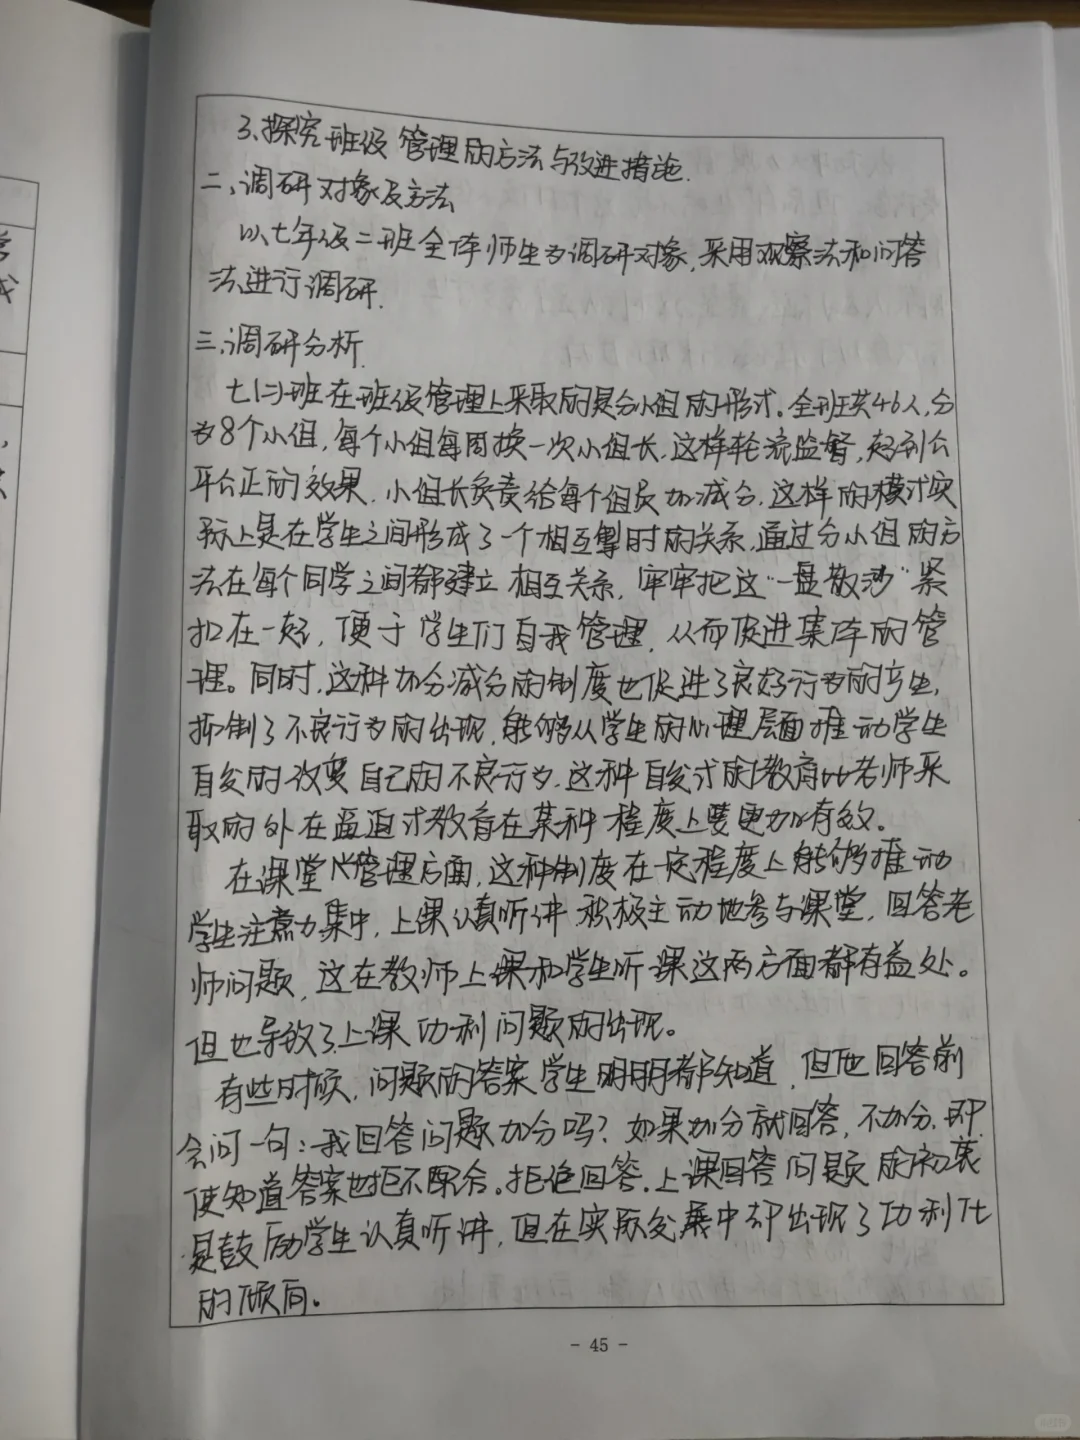 3.探究班级管理的方法与改进措施.
二、调研对象及方法
以七年级二班全体师生为调研对象,采用观察法和问答
法进行调研.
三、调研分析.
七(二)班在班级管理上采取的是分小组的形式。全班共46人,分
为8个小组,每个小组每周换一次小组长,这样轮流监督,起到公
平公正的效果.小组长负责给每个组员加减分.这样的模式实
际上是在学生之间形成了一个相互掣肘的关系,通过分小组的方
法在每个同学之间都建立相互关系,牢牢把这"一盘散沙"紧
扣在一起,便于学生们自我管理,从而促进集体的管
理。同时,这种加分减分的制度也促进了良好行为的产生,
抑制了不良行为的出现,能够从学生的心理层面推动学生
自发的改变自己的不良行为.这种自发式的教育比老师采
取的外在逼迫式教育在某种程度上要更加有效。
在课堂管理方面,这种制度在一定程度上能够推动
学生注意力集中,上课认真听讲.积极主动地参与课堂,回答老
师问题,这在教师上课和学生听课这两方面都有益处。
但也导致了上课功利问题的出现。
有些时候,问题的答案学生明明都知道,但他回答前
会问一句:我回答问题加分吗?如果加分就回答,不加分,即
使知道答案也拒不配合.拒绝回答.上课回答问题的初衷
是鼓励学生认真听讲,但在实际发展中却出现了功利化
的倾向。
- 45 -